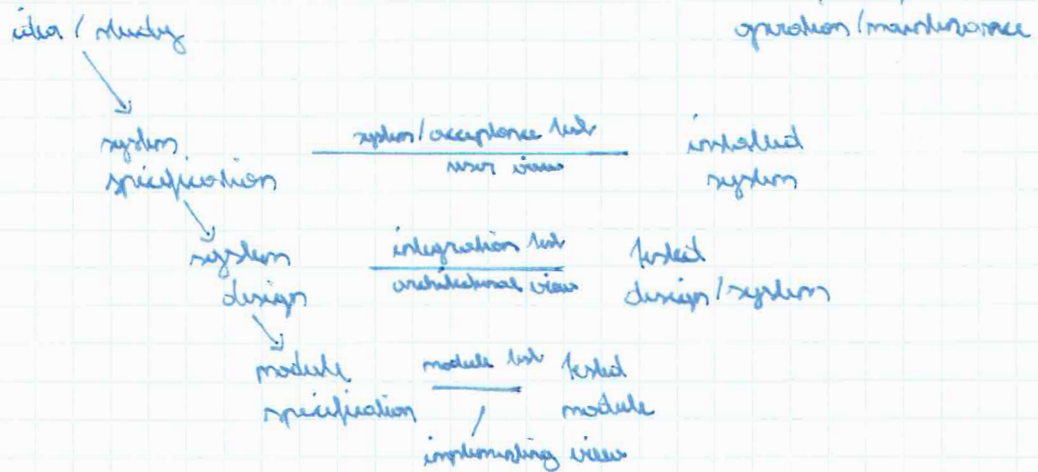 idea / study
operation/maintenance
system
specification
system/acceptance test
user view
installed
system
system
design
integration test
architectural view
tested
design/system
module
specification
module test
tested
module
implementing view